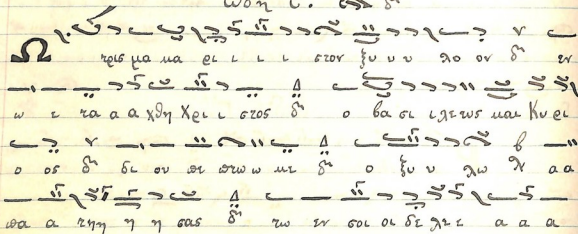 Ω τρισ μα κα ρι ι ι ι στον ξυ υ υ λο ον δι εν
ω ε τα α α χθη Χρι ι στος δι ο βα σι ι λευς και Κυ ρι
ο ος δι δι ου πε πτω ω κε δι ο ξυ υ λω λ α α
πα α τη η η η σας δι τω εν σοι οι δε λε ε α α α